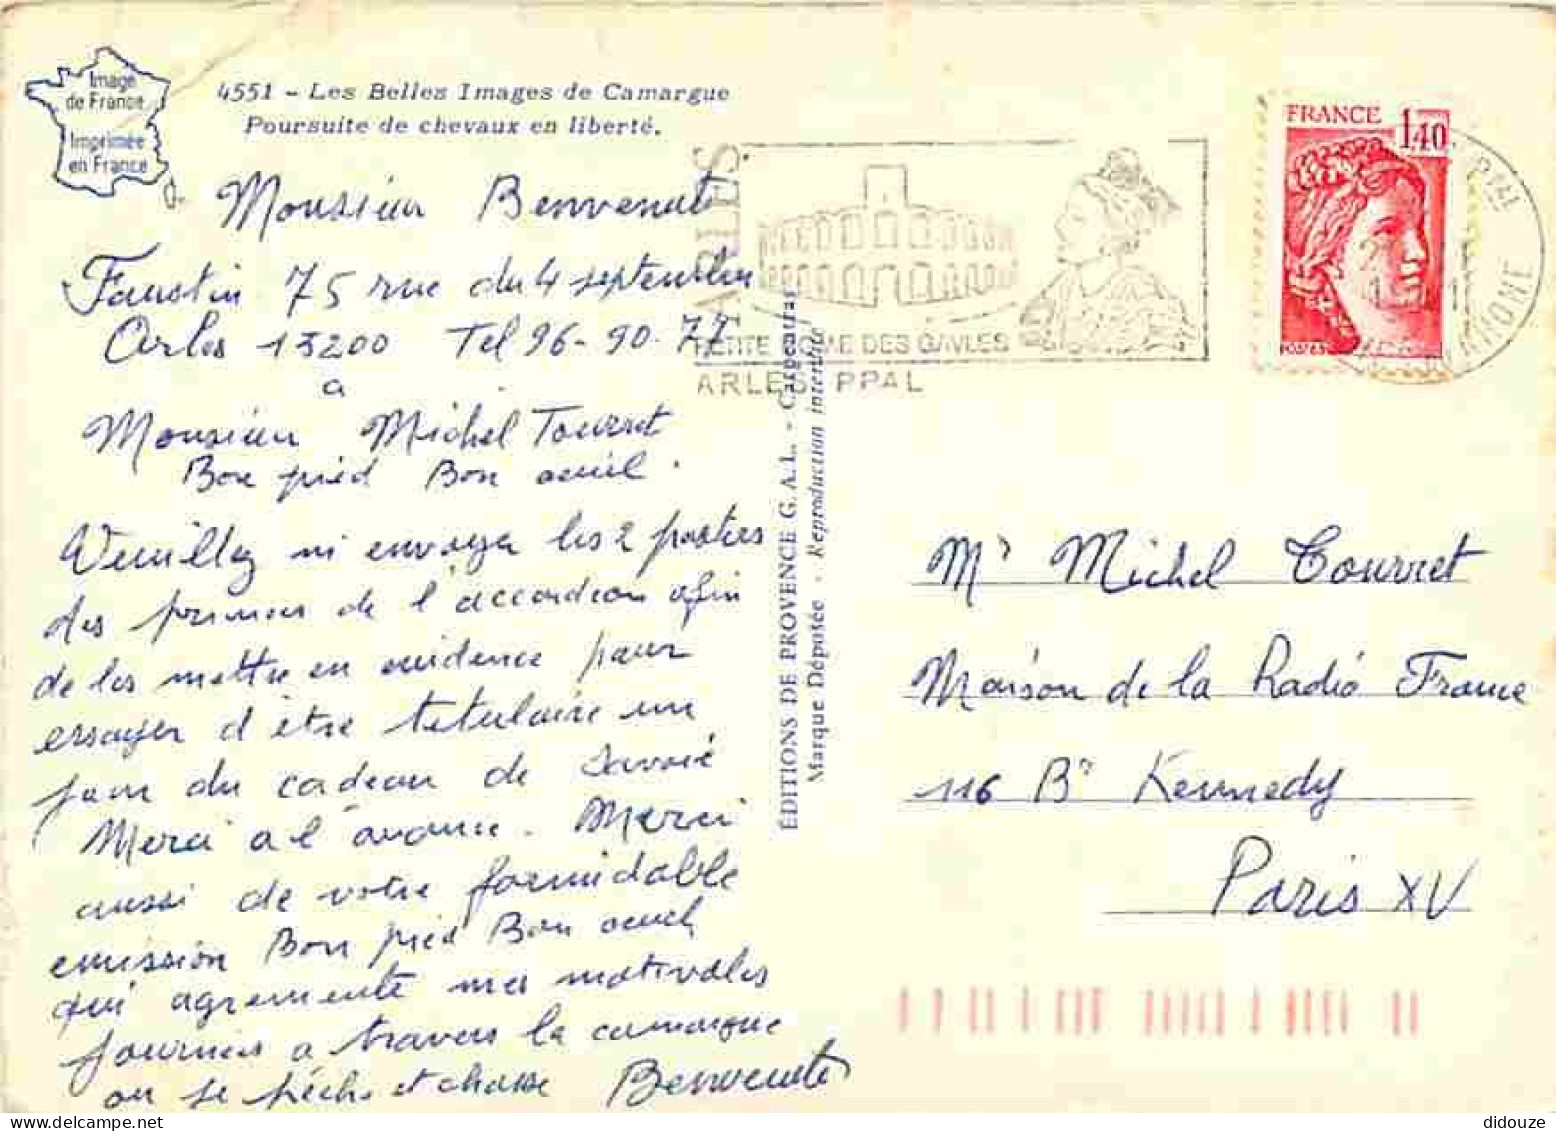 Image
de France
Imprimée
en France
4551 - Les Belles Images de Camargue
Poursuite de chevaux en liberté.
Monsieur Benvenuti
Faustin 75 rue du 4 septembre
Arles 13200 Tel 96-90.77
a
Monsieur Michel Tourret
Bon pied Bon oeuil.
Veuillez m envoyer les 2 parties
des primes de l'accordeon afin
de les mettre en evidence pour
essayer d'être titulaire un
jour du cadeau de Savoie
Merci a l'avance. Merci
aussi de votre formidable
emission Bon pied Bon oeuil
qui agremente mes matinales
journeés a travers la camargue
ou je pêche et chasse Benvenuti
ÉDITIONS DE PROVENCE G.A.L. - Carpentras
Marque Déposée - Reproduction interdite
ARLES
PETITE ROME DES GAULES
ARLES PPAL
FRANCE 1,40
POSTES
PPAL
RHONE
Mr Michel Tourret
Maison de la Radio France
116 Bd Kennedy
Paris XV
didouze